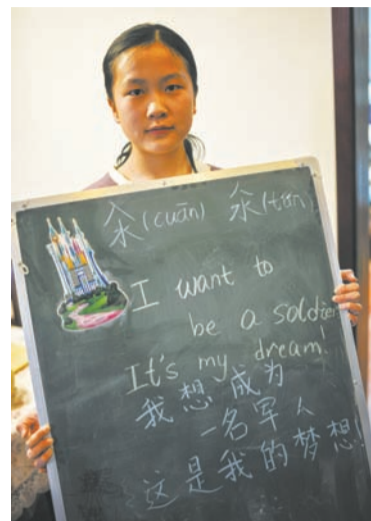 氽(cuān) 汆(tǔn)
I want to
be a soldier
It's my dream!
我想成为
一名军人
这是我的梦想!